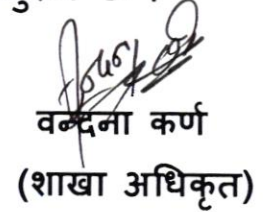 वन्दना कर्ण
(शाखा अधिकृत)